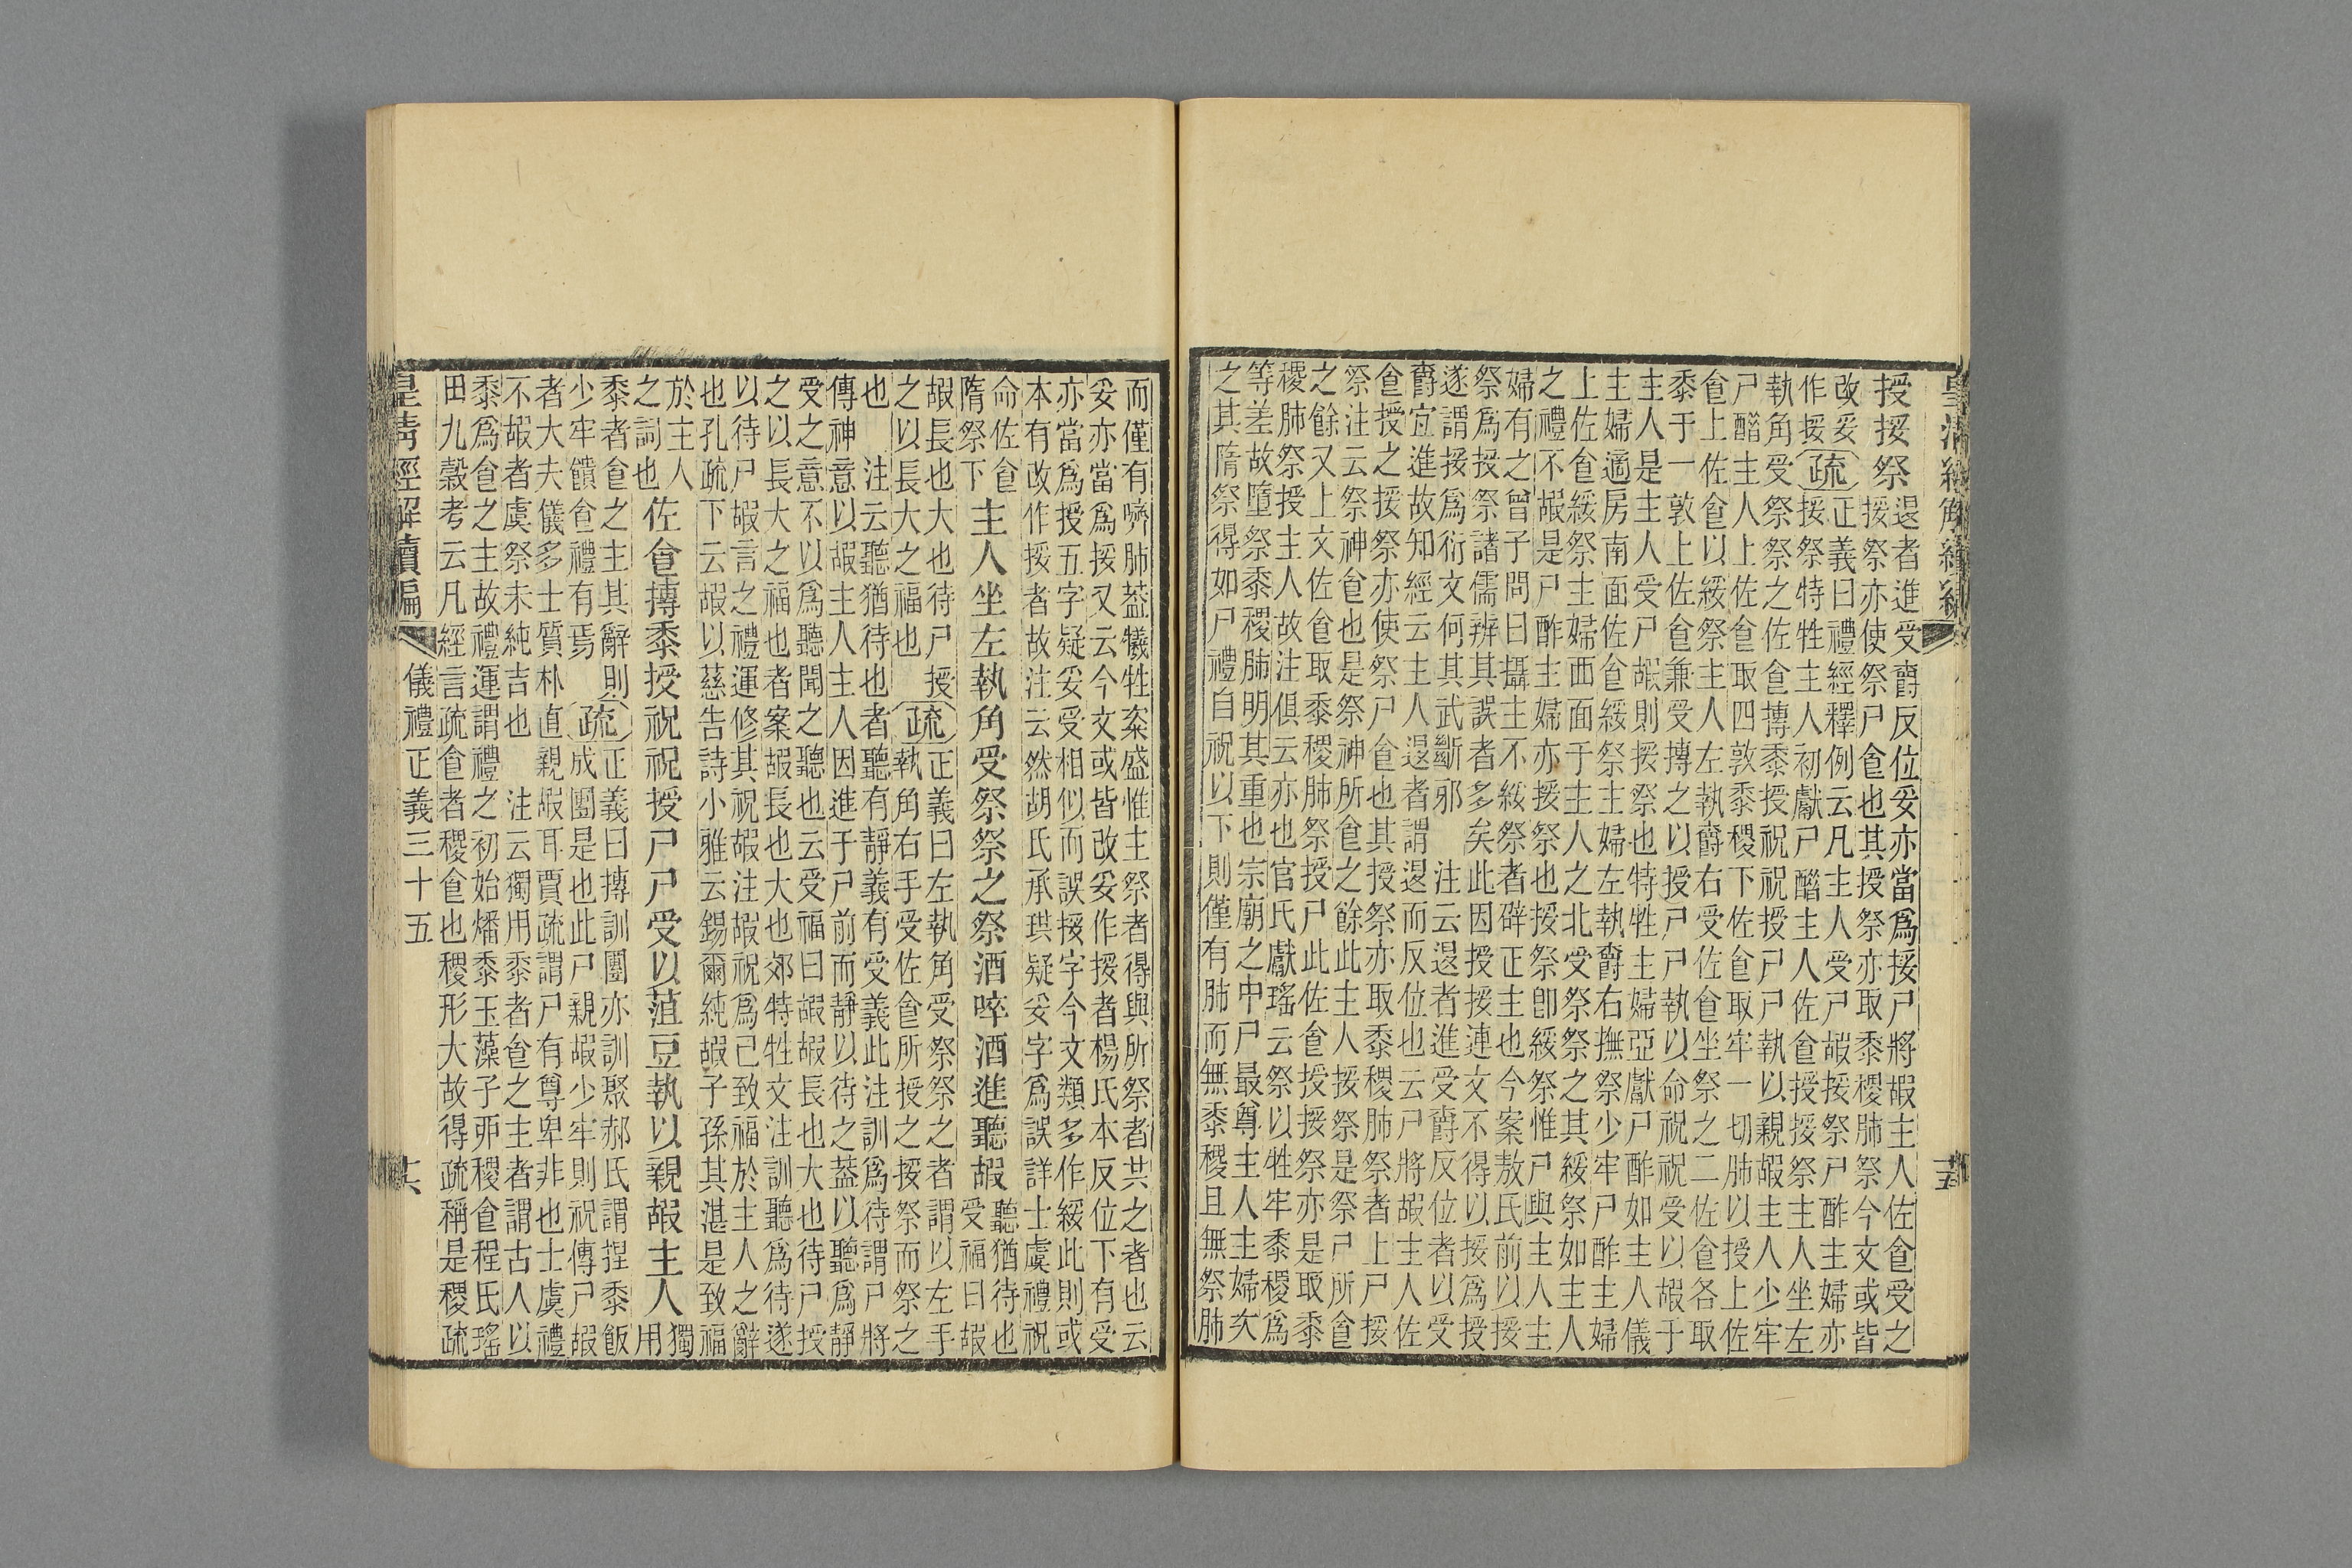 授挼祭
退者進受爵反位妥亦當爲挼尸將嘏主人佐𠊊受之
挼祭亦使祭尸𠊊也其授祭亦取黍稷肺祭今文或皆
改妥
作挼
疏
正義曰禮經釋例云凡主人受尸嘏挼祭尸酢主婦亦
挼祭特牲主人初獻尸酳主人佐𠊊授挼祭主人坐左
執角受祭祭之佐𠊊摶黍授祝祝授尸尸執以親嘏主人少牢
尸酳主人上佐𠊊取四敦黍稷下佐𠊊取牢一切肺以授上佐
𠊊上佐𠊊以綏祭主人左執爵右受佐𠊊坐祭之二佐𠊊各取
黍于一敦上佐𠊊兼受摶之以授尸尸執以命祝祝受以嘏于
主人是主人受尸嘏則挼祭也特牲主婦亞獻尸酢如主人儀
主婦適房南面佐𠊊綏祭主婦左執爵右撫祭少牢尸酢主婦
上佐𠊊綏祭主婦西面于主人之北受祭祭之其綏祭如主人
之禮不嘏是尸酢主婦亦挼祭也挼祭卽綏祭惟尸與主人主
婦有之曾子問曰攝主不綏祭者辟正主也今案敖氏前以挼
祭爲授祭諸儒辨其誤者多矣此因授挼連文不得以挼爲授
遂謂挼爲衍文何其武斷邪　注云退者進受爵反位者以受
爵宜進故知經云主人退者謂退而反位也云尸將嘏主人佐
𠊊授之挼祭亦使祭尸𠊊也其授祭亦取黍稷肺祭者上尸挼
祭注云祭神𠊊也是祭神所𠊊之餘此主人挼祭是祭尸所𠊊
之餘又上文佐𠊊取黍稷肺祭授尸此佐𠊊授挼祭亦是取黍
稷肺祭授主人故注俱云亦也官氏獻瑤云祭以牲牢黍稷爲
等差故墮祭黍稷肺明其重也宗廟之中尸最尊主人主婦次
之其隋祭得如尸禮自祝以下則僅有肺而無黍稷且無祭肺
而僅有嚌肺葢犧牲粢盛惟主祭者得與所祭者共之者也云
妥亦當爲挼又云今文或皆改妥作挼者楊氏本反位下有受
亦當爲授五字疑妥受相似而誤挼字今文類多作綏此則或
本有改作挼者故注云然胡氏承珙疑妥字爲誤詳士虞禮祝
命佐𠊊
隋祭下
主人坐左執角受祭祭之祭酒啐酒進聽嘏
聽猶待也
受福曰嘏
嘏長也大也待尸授
之以長大之福也
疏
正義曰左執角受祭祭之者謂以左手
執角右手受佐𠊊所授之挼祭而祭之
也　注云聽猶待也者聽有靜義有受義此注訓爲待謂尸將
傳神意以嘏主人主人因進于尸前而靜以待之葢以聽爲靜
受之意不以爲聽聞之聽也云受福曰嘏嘏長也大也待尸授
之以長大之福也者案嘏長也大也郊特牲文注訓聽爲待遂
以待尸嘏言之禮運修其祝嘏注嘏祝爲己致福於主人之辭
也孔疏下云嘏以慈告詩小雅云錫爾純嘏子孫其湛是致福
於主人
之詞也
佐𠊊摶黍授祝祝授尸尸受以菹豆執以親嘏主人
獨用
黍者𠊊之主其辭則
少牢饋𠊊禮有焉
疏
正義曰摶訓團亦訓聚郝氏謂捏黍飯
成團是也此尸親嘏少牢則祝傳尸嘏
者大夫儀多士質朴直親嘏耳賈疏謂尸有尊卑非也士虞禮
不嘏者虞祭未純吉也　注云獨用黍者𠊊之主者謂古人以
黍爲𠊊之主故禮運謂禮之初始燔黍玉藻子夘稷𠊊程氏瑤
田九穀考云凡經言疏𠊊者稷𠊊也稷形大故得疏稱是稷疏
皇清經解續編
儀禮正義三十五